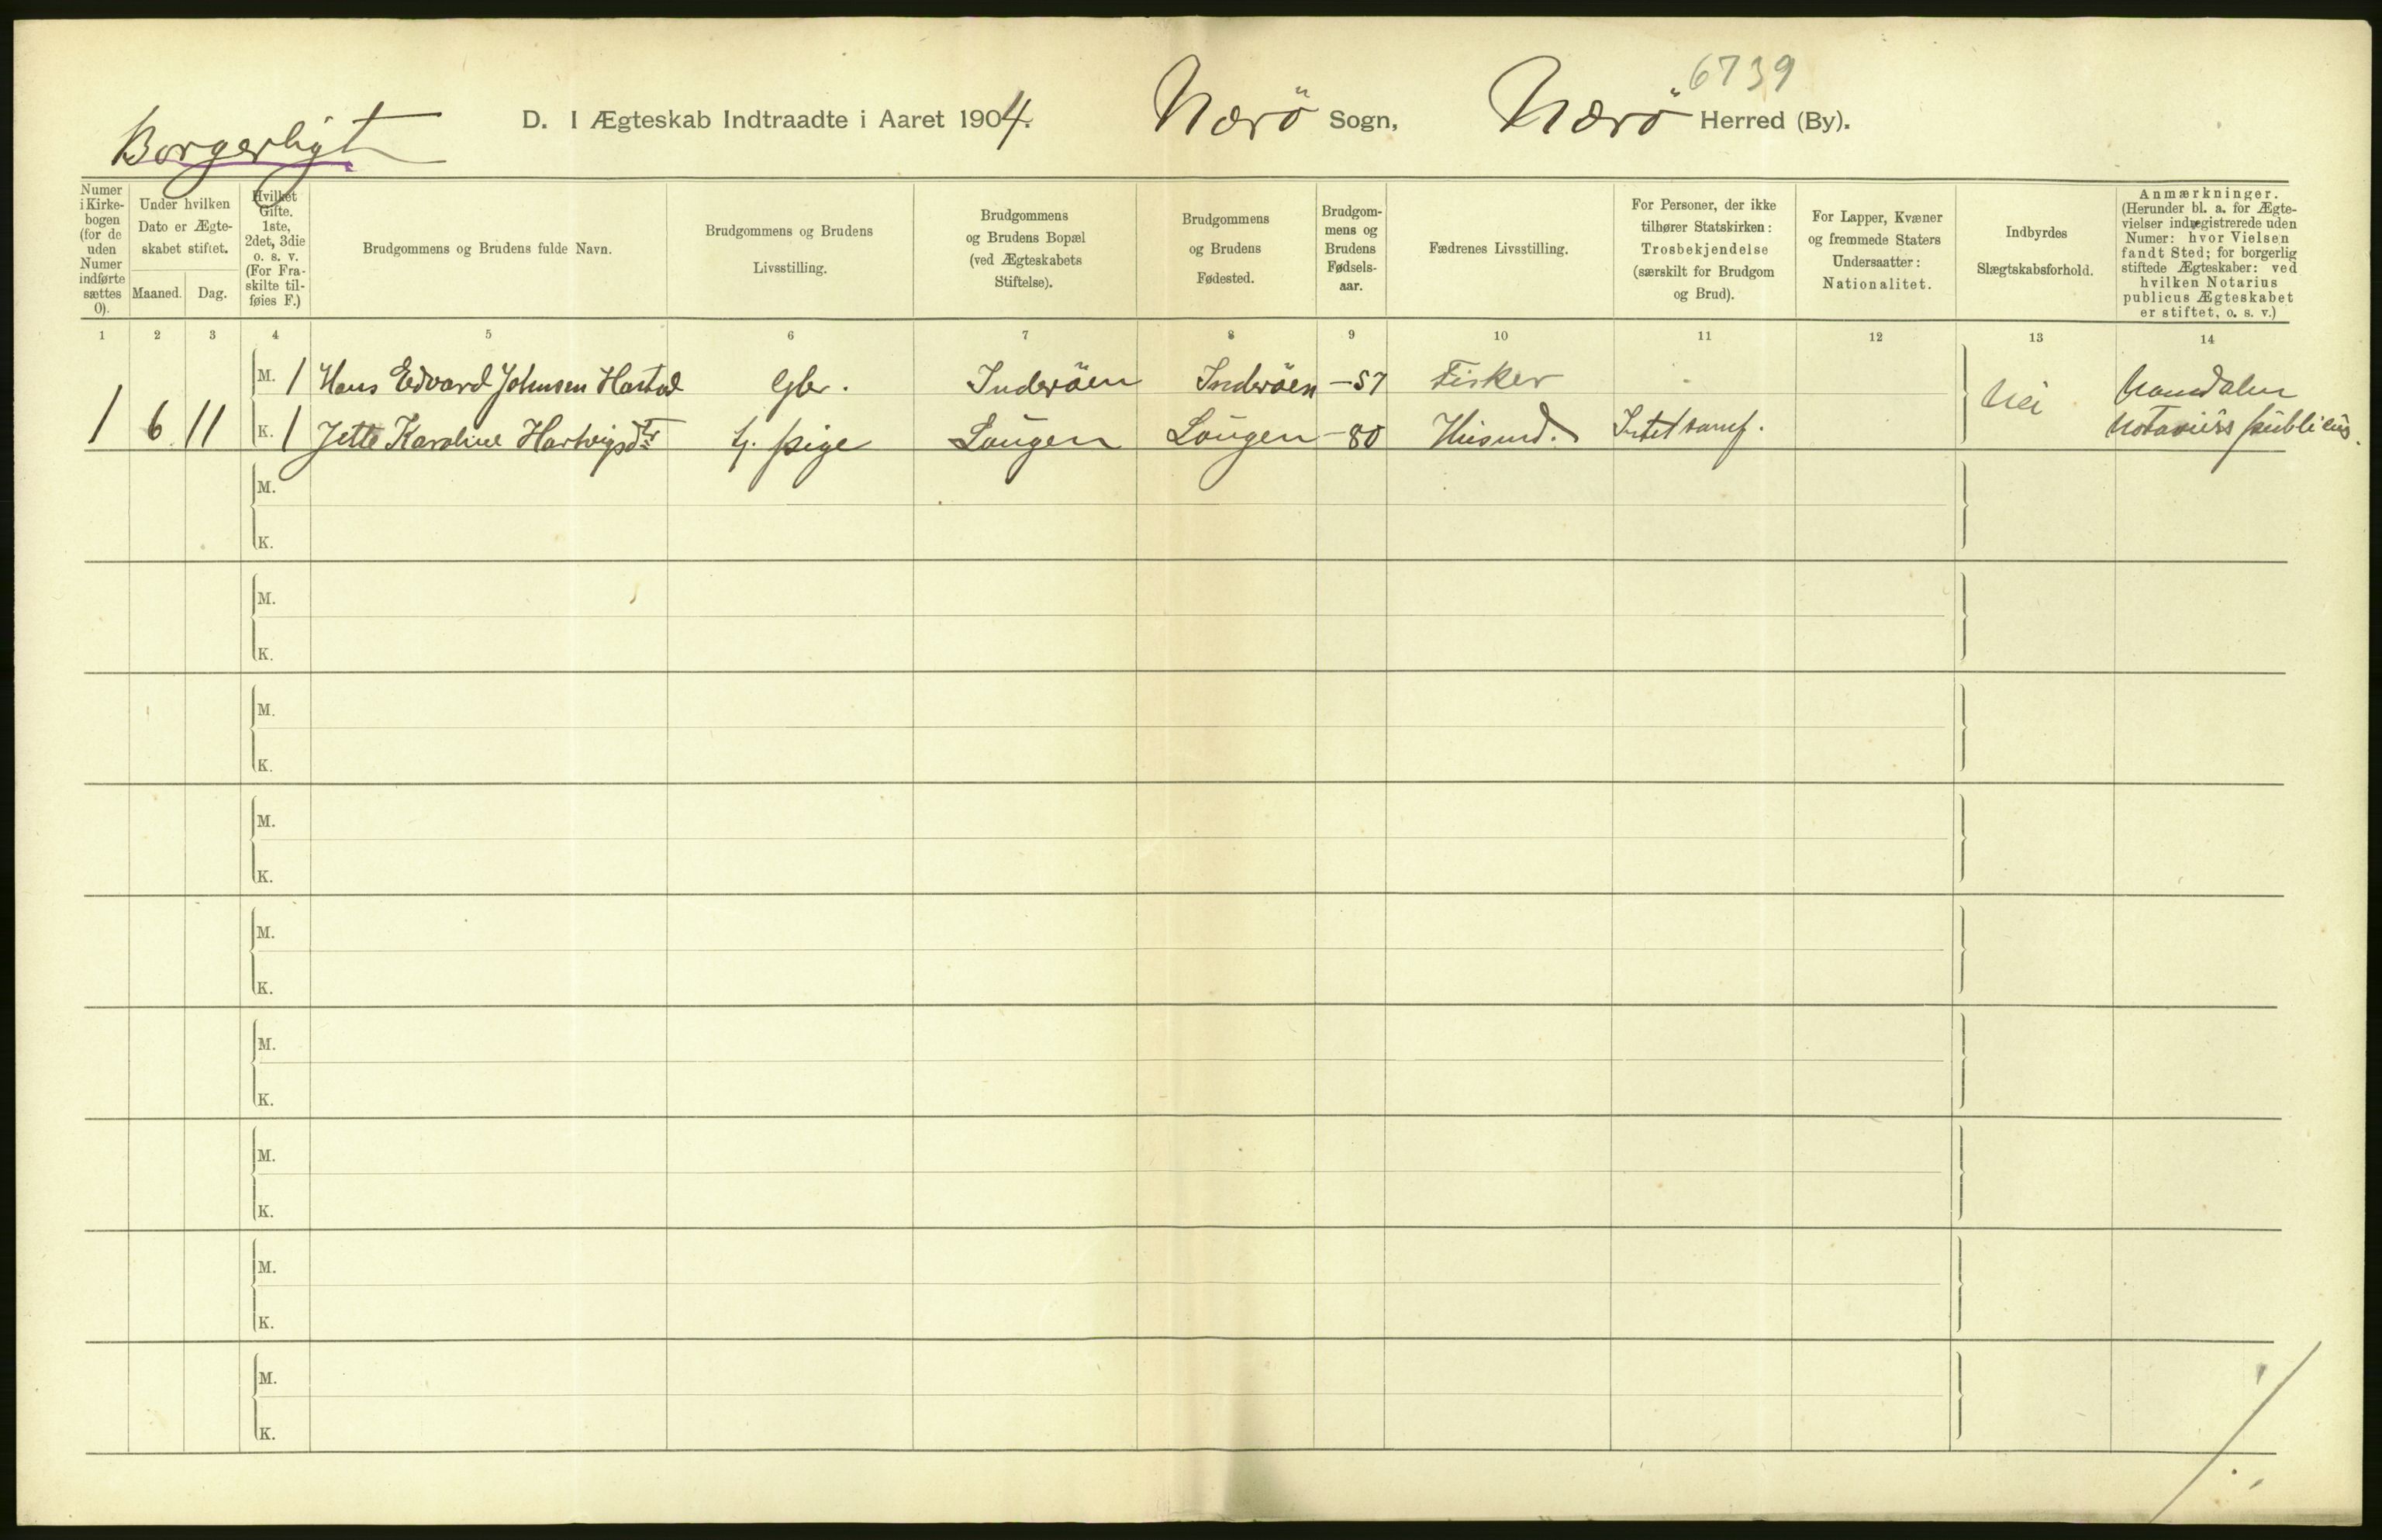 6739
Borgerligt D. I Ægteskab Indtraadte i Aaret 1904. Nærö Sogn, Nærö Herred (By).
Numer i Kirkebogen (for de uden Numer indførte sættes 0).
Under hvilken Dato er Ægteskabet stiftet.
Maaned. Dag.
Hvilket Gifte. 1ste, 2det, 3die o. s. v. (For Fraskilte tilføies F.)
Brudgommens og Brudens fulde Navn.
Brudgommens og Brudens Livsstilling.
Brudgommens og Brudens Bopæl (ved Ægteskabets Stiftelse).
Brudgommens og Brudens Fødested.
Brudgommens og Brudens Fødselsaar.
Fædrenes Livsstilling.
For Personer, der ikke tilhører Statskirken: Trosbekjendelse (særskilt for Brudgom og Brud).
For Lapper, Kvæner og fremmede Staters Undersaatter: Nationalitet.
Indbyrdes Slægtskabsforhold.
Anmærkninger. (Herunder bl. a. for Ægtevielser indregistrerede uden Numer: hvor Vielsen fandt Sted; for borgerlig stiftede Ægteskaber: ved hvilken Notarius publicus Ægteskabet er stiftet, o. s. v.)
1 2 3 4 5 6 7 8 9 10 11 12 13 14
M. 1 Hans Edvard Johnsen Hastad Gbr. Inderöen Inderöen -57 Fisker Nei Namdalen
1 6 11 K. 1 Jette Karoline Hartvigsdtr t. pige Laugen Laugen -80 Husmd. Intet samf. Notarius publicus.
M.
K.
M.
K.
M.
K.
M.
K.
M.
K.
M.
K.
M.
K.
M.
K.
M.
K.